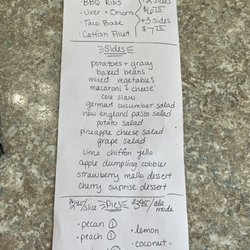 BBQ Ribs
• Liver + Onions
• Taco Bake
• Catfish Fillet
+ 2 sides
+ 3 sides
Sides
potatoes + gravy
baked beans
mixed vegetables
macaroni & cheese
cole slaw
german cucumber salad
new england pasta salad
potato salad
pineapple cheese salad
grape salad
lime chiffon jello
apple dumpling cobbler
strawberry mello dessert
cherry suprise dessert
slice Pies ala mode
• pecan
• peach
• lemon
• coconut